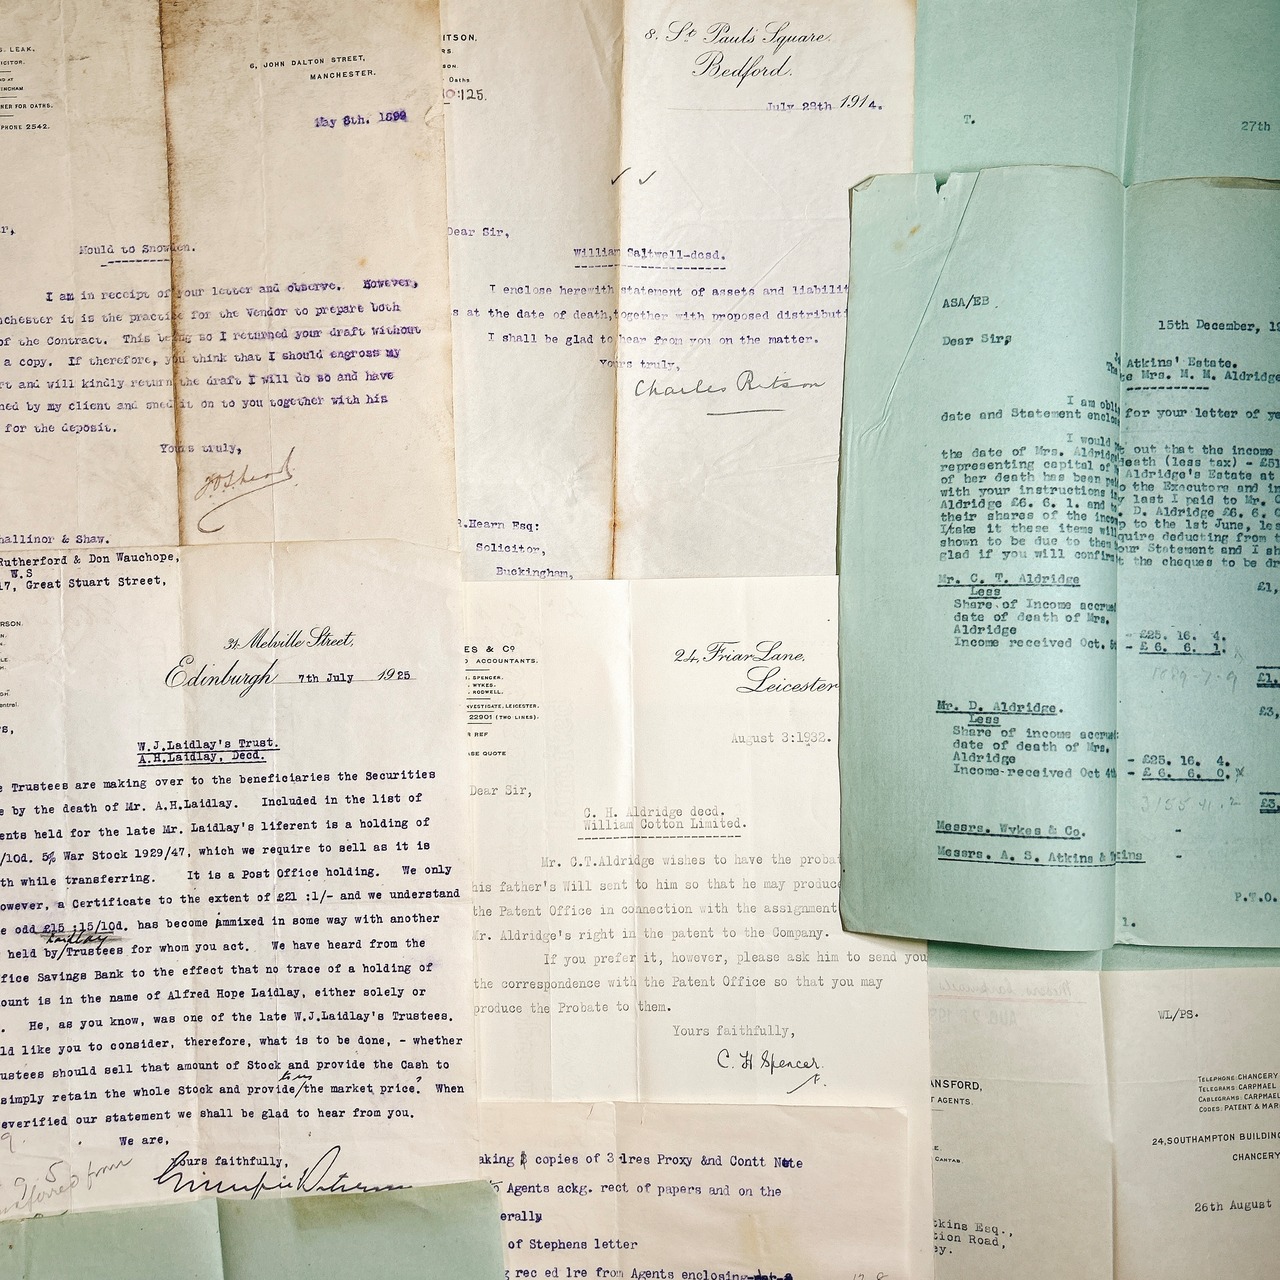 S. LEAK.
6, JOHN DALTON STREET,
MANCHESTER.
NER FOR OATHS.
PHONE 2542.
May 8th. 1899
Mould to Snowden.
I am in receipt of your letter and observe. However,
nchester it is the practice for the Vendor to prepare both
of the Contract. This being so I returned your draft without
a copy. If therefore, you think that I should engross my
rt and will kindly return the draft I will do so and have
ned by my client and sned it on to you together with his
for the deposit.
Yours truly,
hallinor & Shaw.
ITSON.
Oaths
8. St Paul's Square.
Bedford.
July 28th 1914.
Dear Sir,
William Saltwell-dcsd.
I enclose herewith statement of assets and liabilit
s at the date of death,together with proposed distributi
I shall be glad to hear from you on the matter.
Yours truly,
Charles Ritson
R.Hearn Esq:
Solicitor,
Buckingham,
T.
27th
ASA/EB.
15th December, 19
Dear Sir,
Atkins' Estate.
te Mrs. M. M. Aldridge
I am obli for your letter of ye
date and Statement enclos
I would out that the income
the date of Mrs. Aldridge death (less tax) - £51
representing capital of Aldridge's Estate at
of her death has been pai o the Executors and in
with your instructions y last I paid to Mr. C
Aldridge £6. 6. 1. and to D. Aldridge £6. 6. 0
their shares of the incom p to the 1st June, les
I/take it these items will quire deducting from t
shown to be due to them our Statement and I sh
glad if you will confirm t the cheques to be dr
Mr. C. T. Aldridge
£1,
Less
Share of Income accrued
date of death of Mrs.
Aldridge - £25. 16. 4.
Income received Oct. - £ 6. 6. 1.
£1,
Mr. D. Aldridge.
£3,
Less
Share of income accrued
date of death of Mrs.
Aldridge - £25. 16. 4.
Income received Oct 4th - £ 6. 6. 0.
£3,
Messrs. Wykes & Co. -
Messrs. A. S. Atkins & kins -
P.T.O.
1.
Rutherford & Don Wauchope,
W.S
17, Great Stuart Street,
31 Melville Street,
Edinburgh 7th July 1925
W.J.Laidlay's Trust.
A.H.Laidlay, Decd.
e Trustees are making over to the beneficiaries the Securities
e by the death of Mr. A.H.Laidlay. Included in the list of
ents held for the late Mr. Laidlay's liferent is a holding of
/10d. 5% War Stock 1929/47, which we require to sell as it is
th while transferring. It is a Post Office holding. We only
owever, a Certificate to the extent of £21 :1/- and we understand
e odd £15 :15/10d. has become immixed in some way with another
Laidlay
held by/Trustees for whom you act. We have heard from the
ffice Savings Bank to the effect that no trace of a holding of
ount is in the name of Alfred Hope Laidlay, either solely or
. He, as you know, was one of the late W.J.Laidlay's Trustees.
ld like you to consider, therefore, what is to be done, - whether
ustees should sell that amount of Stock and provide the Cash to
simply retain the whole Stock and provide/the market price? When
everified our statement we shall be glad to hear from you.
We are,
Yours faithfully,
from
ES & Co
ACCOUNTANTS.
SPENCER.
WYKES.
RODWELL.
INVESTIGATE, LEICESTER.
22901 (TWO LINES).
R REF
ASE QUOTE
24, Friar Lane,
Leicester
August 3:1932.
Dear Sir,
C. H. Aldridge decd.
William Cotton Limited.
Mr. C.T.Aldridge wishes to have the probat
his father's Will sent to him so that he may produce
the Patent Office in connection with the assignment
Mr. Aldridge's right in the patent to the Company.
If you prefer it, however, please ask him to send you
the correspondence with the Patent Office so that you may
produce the Probate to them.
Yours faithfully,
C. H Spencer.
aking copies of 3 lres Proxy &nd Contt Note
Agents ackg. rect of papers and on the
erally
of Stephens letter
g rec ed lre from Agents enclosing
WL/PS.
ANSFORD,
T AGENTS.
CANTAB.
TELEPHONE: CHANCERY
TELEGRAMS: CARPMAEL
CABLEGRAMS: CARPMAEL
CODES: PATENT & MAR
24, SOUTHAMPTON BUILDING
CHANCERY
26th August
tkins Esq.,
tion Road,
ey.